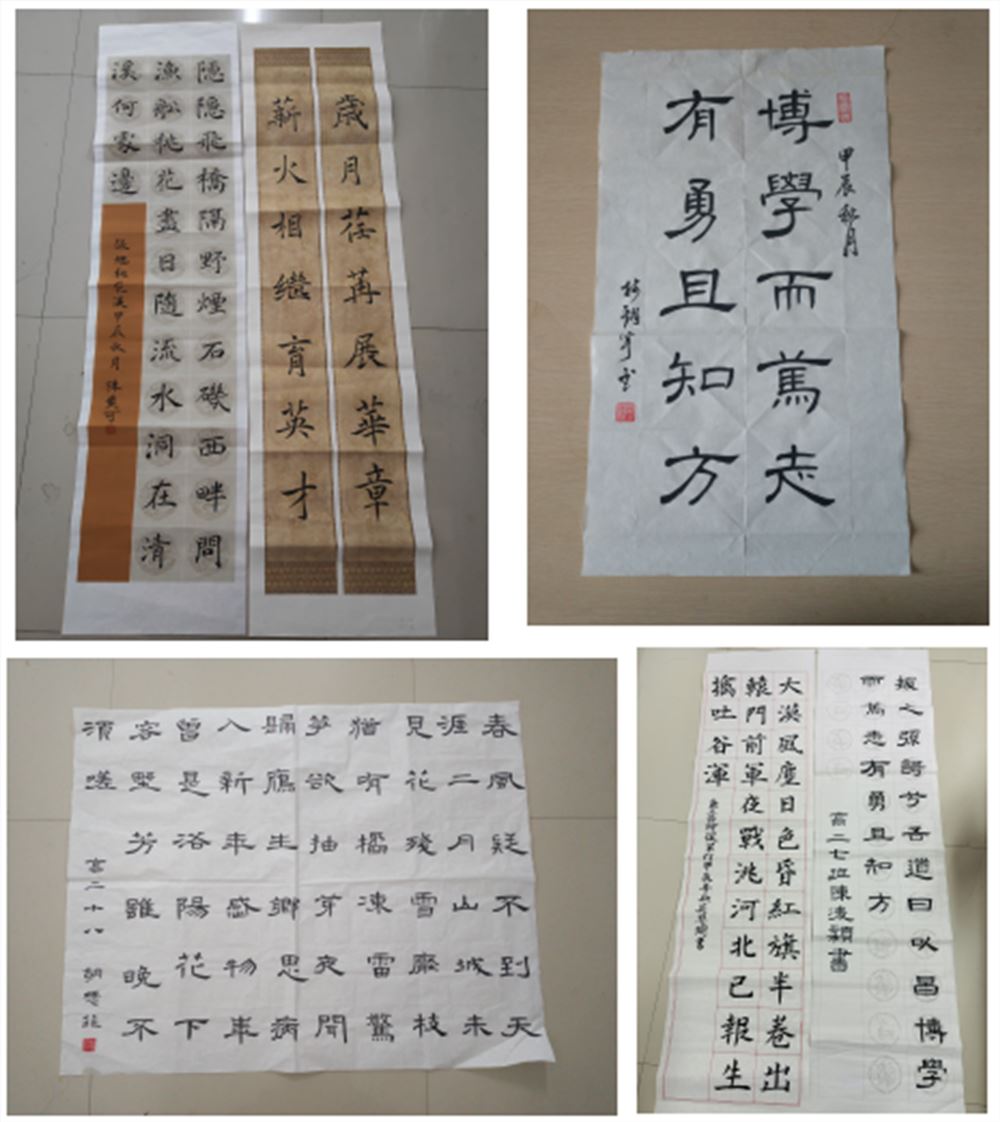 歲月荏苒展華章
薪火相繼育英才
隱隱飛橋隔野煙石磯西畔問
漁船桃花盡日隨流水洞在清
溪何處邊
張旭桃花溪甲辰秋月
甲辰秋月
博學而篤志
有勇且知方
春風疑不到天
涯二月山城未
見花殘雪壓枝
猶有橘凍雷驚
笋欲抽芽夜聞
歸雁生鄉思病
入新年感物華
曾是洛陽花下
客野芳雖晚不
須嗟
高二十八 胡
振之彌諤兮吾道曰以昌博學
而篤志有勇且知方
高二七班陳浚穎書
大漠風塵日色昏紅旗半卷出
轅門前軍夜戰洮河北已報生
擒吐谷渾